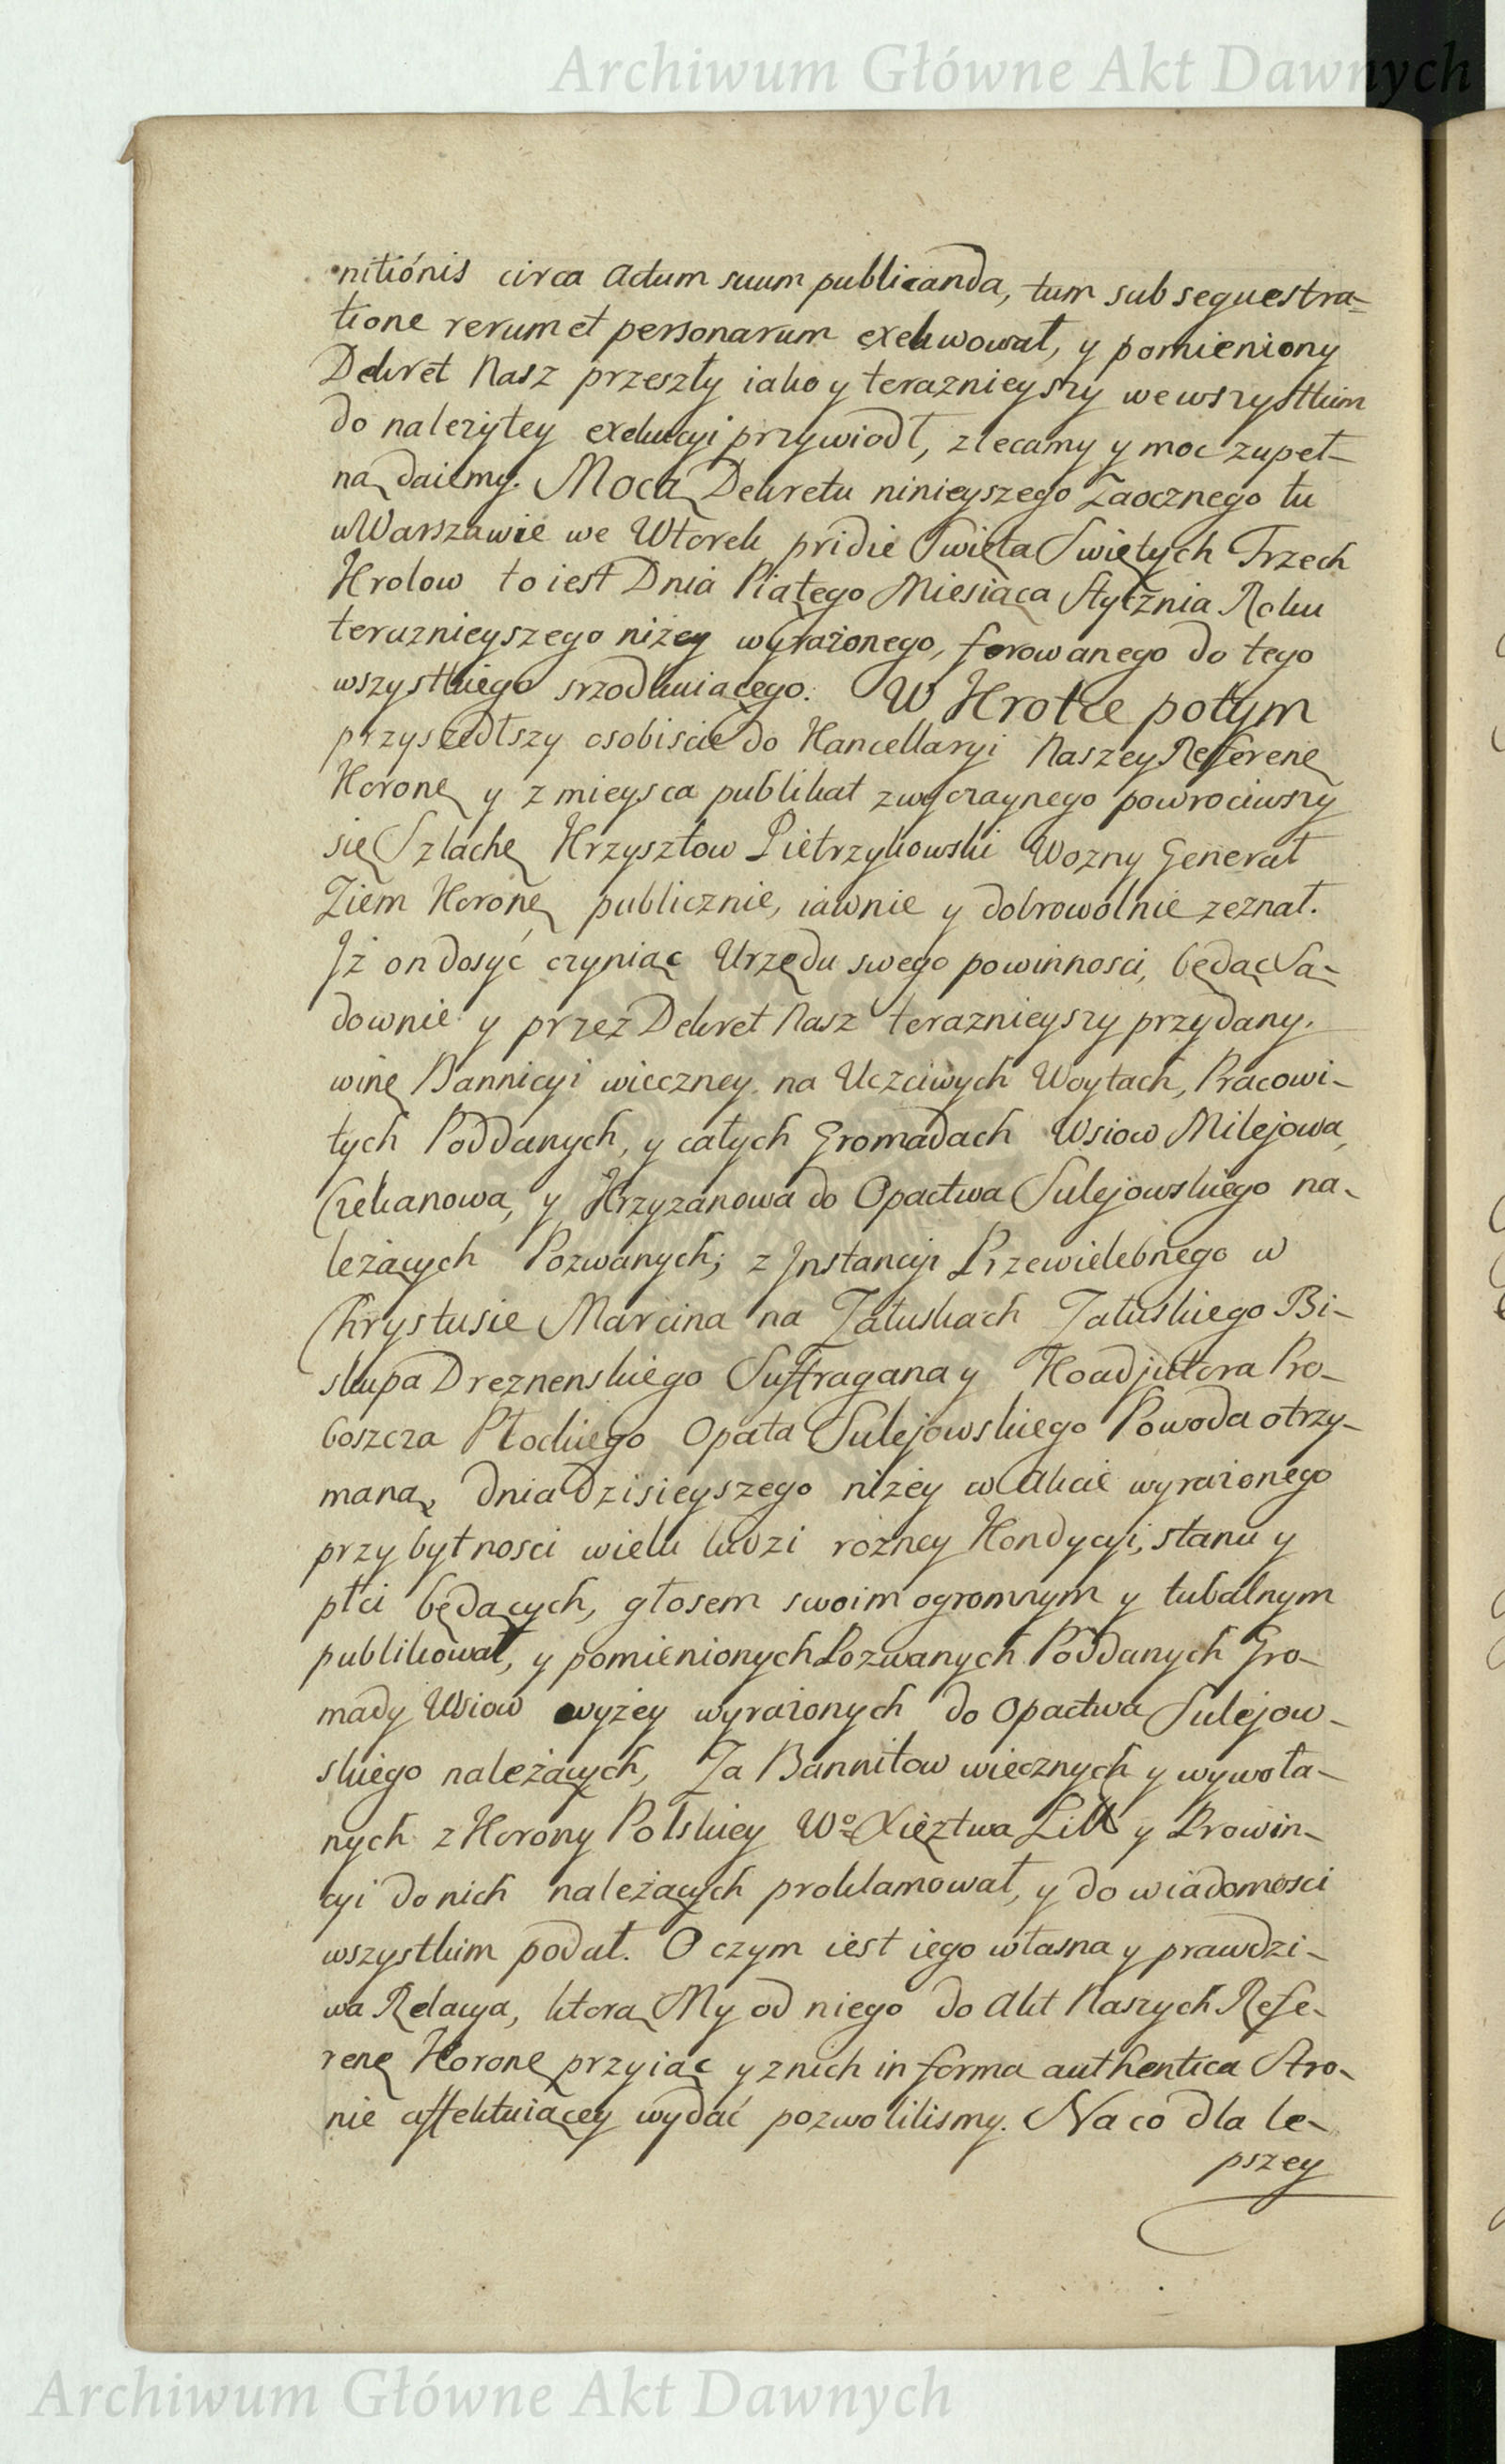 Archiwum Główne Akt Dawnych
nitiónis circa Actum suum publicanda, tum sub sequestra-
tione rerum et personarum exekwował, y pomieniony
Dekret Nasz przeszły iako y teraznieyszy we wszystkim
do nalezytey exekucyi przywiodł, zlecamy y moc zupeł-
ną daiemy. Mocą Dekretu ninieyszego Zaocznego tu
w Warszawie we Wtorek pridie Święta Swiętych Trzech
Krolow to iest Dnia Piątego Miesiąca Stycznia Roku
teraznieyszego niżey wyrażonego, ferowanego do tego
wszystkiego srzodkuiącego. W Krotce potym
przyszedłszy osobiscie do Kancellaryi Naszey Referenę
Koronę y z mieysca publikat zwyczaynego powrociwszy
się Szlachę Krzysztow Pietrzykowski Wozny Generał
Ziem Koronę publicznie, iawnie y dobrowolnie zeznał.
Iż on dosyć czyniąc Urzędu swego powinnosci, będąc Są-
downie y przez Dekret Nasz teraznieyszy przydany.
winę Bannicyi wieczney na Uczciwych Woytach, Pracowi-
tych Poddanych, y całych Gromadach Wsiow Milejowa,
Czekanowa, y Krzyzanowa do Opactwa Sulejowskiego na-
leżących Pozwanych; z Instancyi Przewielebnego w
Chrystusie Marcina na Załuskach Załuskiego Bi-
skupa Drezneńskiego Suffragana y Koadjutora Pro-
boszcza Płockiego Opata Sulejowskiego Powoda otrzy-
maną, dnia Dzisieyszego niżey w Akcie wyrażonego
przy bytnosci wielu ludzi rożney Kondycyi, stanu y
płci będących, głosem swoim ogromnym y tubalnym
publikował, y pomienionych Pozwanych Poddanych Gro-
mady Wsiow wyżey wyrażonych do Opactwa Sulejow-
skiego należących, Za Bannitow wiecznych y wywoła-
nych z Korony Polskiey Wo Xięztwa Litt y Prowin-
cyi do nich należących proklamował, y do wiadomości
wszystkim podał. O czym iest iego własna y prawdzi-
wa Relacya, ktorą My od niego do Akt Naszych Refe-
renę Koronę przyiąc y z nich in forma authentica Stro-
nie affektuiącey wydać pozwolilismy. Na co dla le-
pszey
Archiwum Główne Akt Dawnych